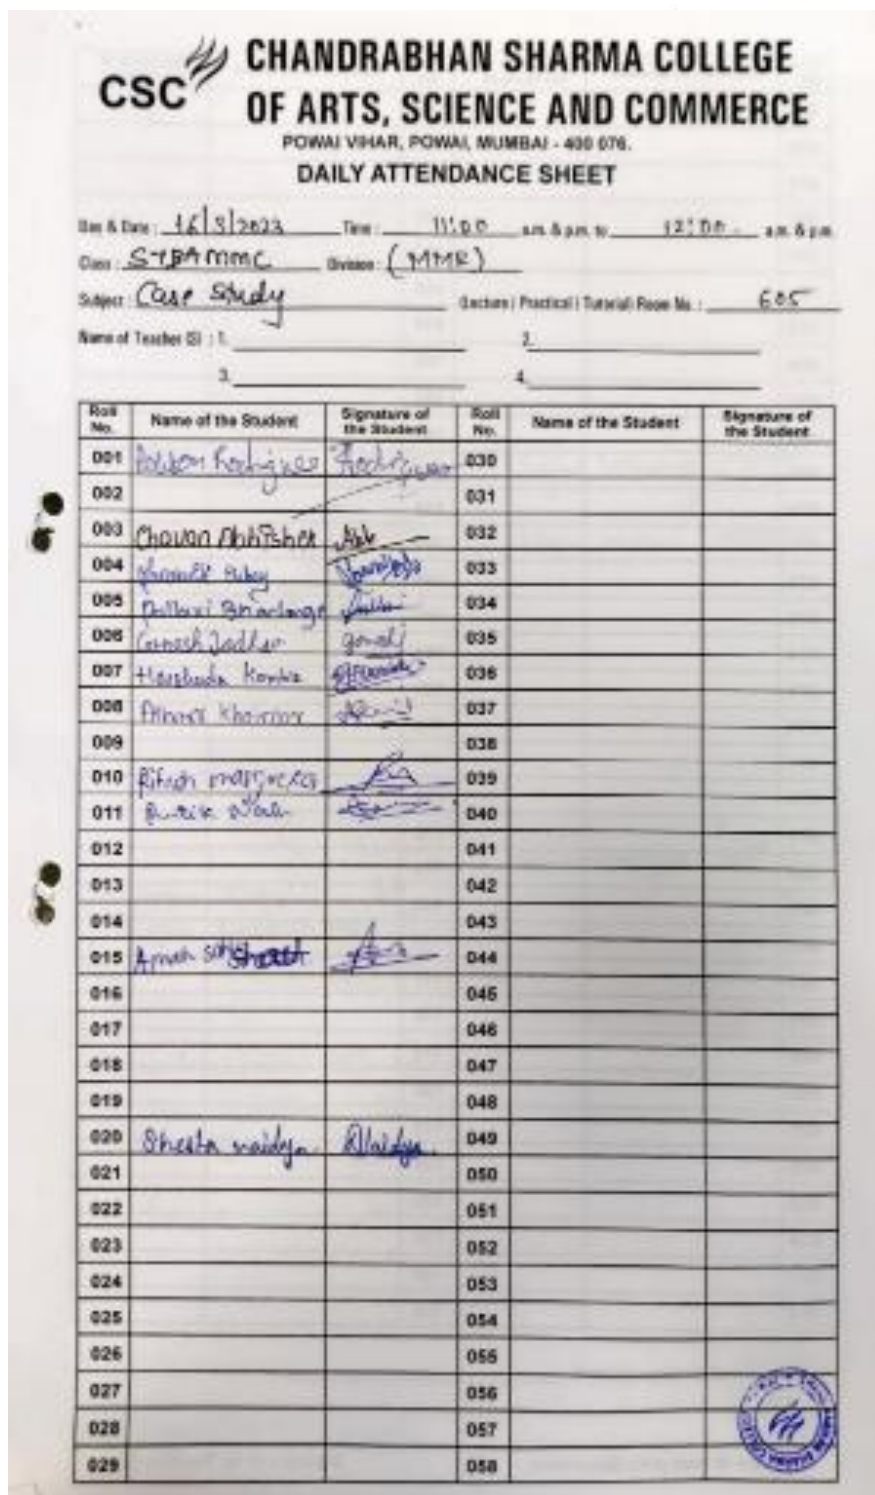 CSC
CHANDRABHAN SHARMA COLLEGE
OF ARTS, SCIENCE AND COMMERCE
POWAI VIHAR, POWAI, MUMBAI - 400 076.
DAILY ATTENDANCE SHEET
Day & Date : 16/3/2023 Time : 11:00 a.m. & p.m. to 12:00 a.m. & p.m.
Class : SYBAMMC Division : (MMR)
Subject : Case Study (Lecture / Practical / Tutorial) Room No. : 605
Name of Teacher (S) : 1. 2.
3. 4.
Roll No. Name of the Student Signature of the Student Roll No. Name of the Student Signature of the Student
001 Rodrigues Rodrigues 030
002 031
003 Chavan Abhishek 032
004 033
005 034
006 Ganesh Jadhav 035
007 Harshada 036
008 Khairnar 037
009 038
010 039
011 040
012 041
013 042
014 043
015 044
016 045
017 046
018 047
019 048
020 Shesta vaidya. Vaidya. 049
021 050
022 051
023 052
024 053
025 054
026 055
027 056
028 057
029 058